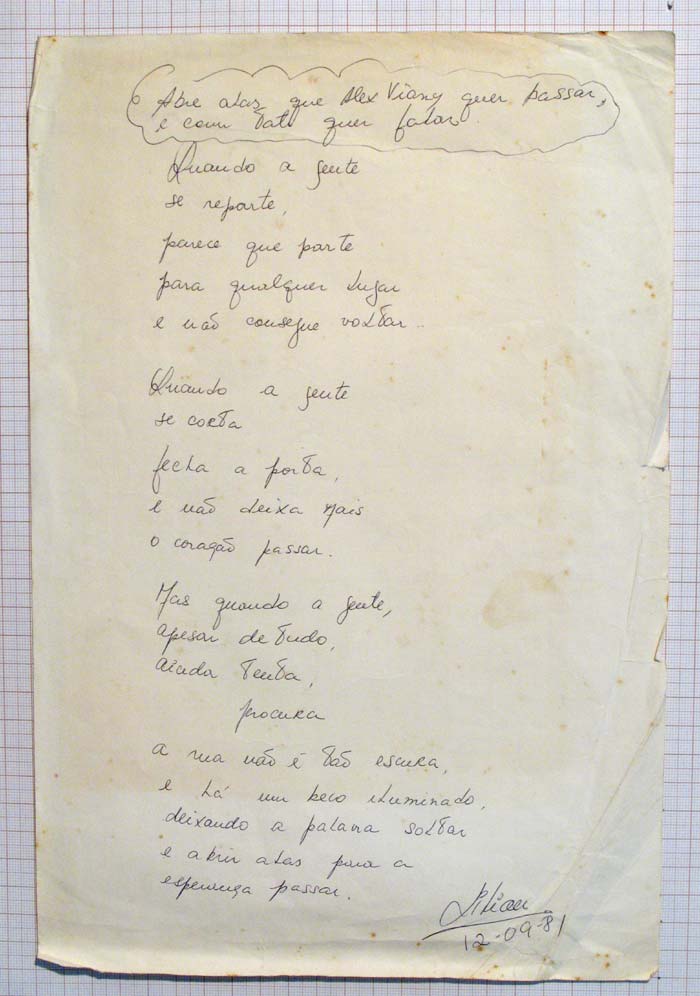 Abre alas que Alex Viany quer passar,
e com tato quer falar.
Quando a gente
se reparte,
parece que parte
para qualquer lugar
e não consegue voltar..
Quando a gente
se corta
fecha a porta,
e não deixa mais
o coração passar.
Mas quando a gente,
apesar de tudo,
ainda tenta,
procura
a rua não é tão escura,
e há um beco iluminado,
deixando a palavra soltar
e abrir alas para a
esperança passar.
Lilian
12-09-81